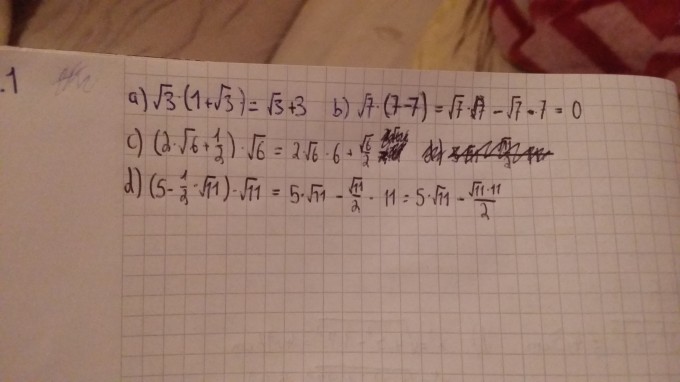 .1
a) √3·(1+√3) = √3+3 b) √7·(7-7) = √7·7 - √7·7 = 0
c) (2·√6+1/2)·√6 = 2√6·6 + √6/2
d) (5-1/2·√11)·√11 = 5·√11 - √11/2 · 11 = 5·√11 - √11·11/2